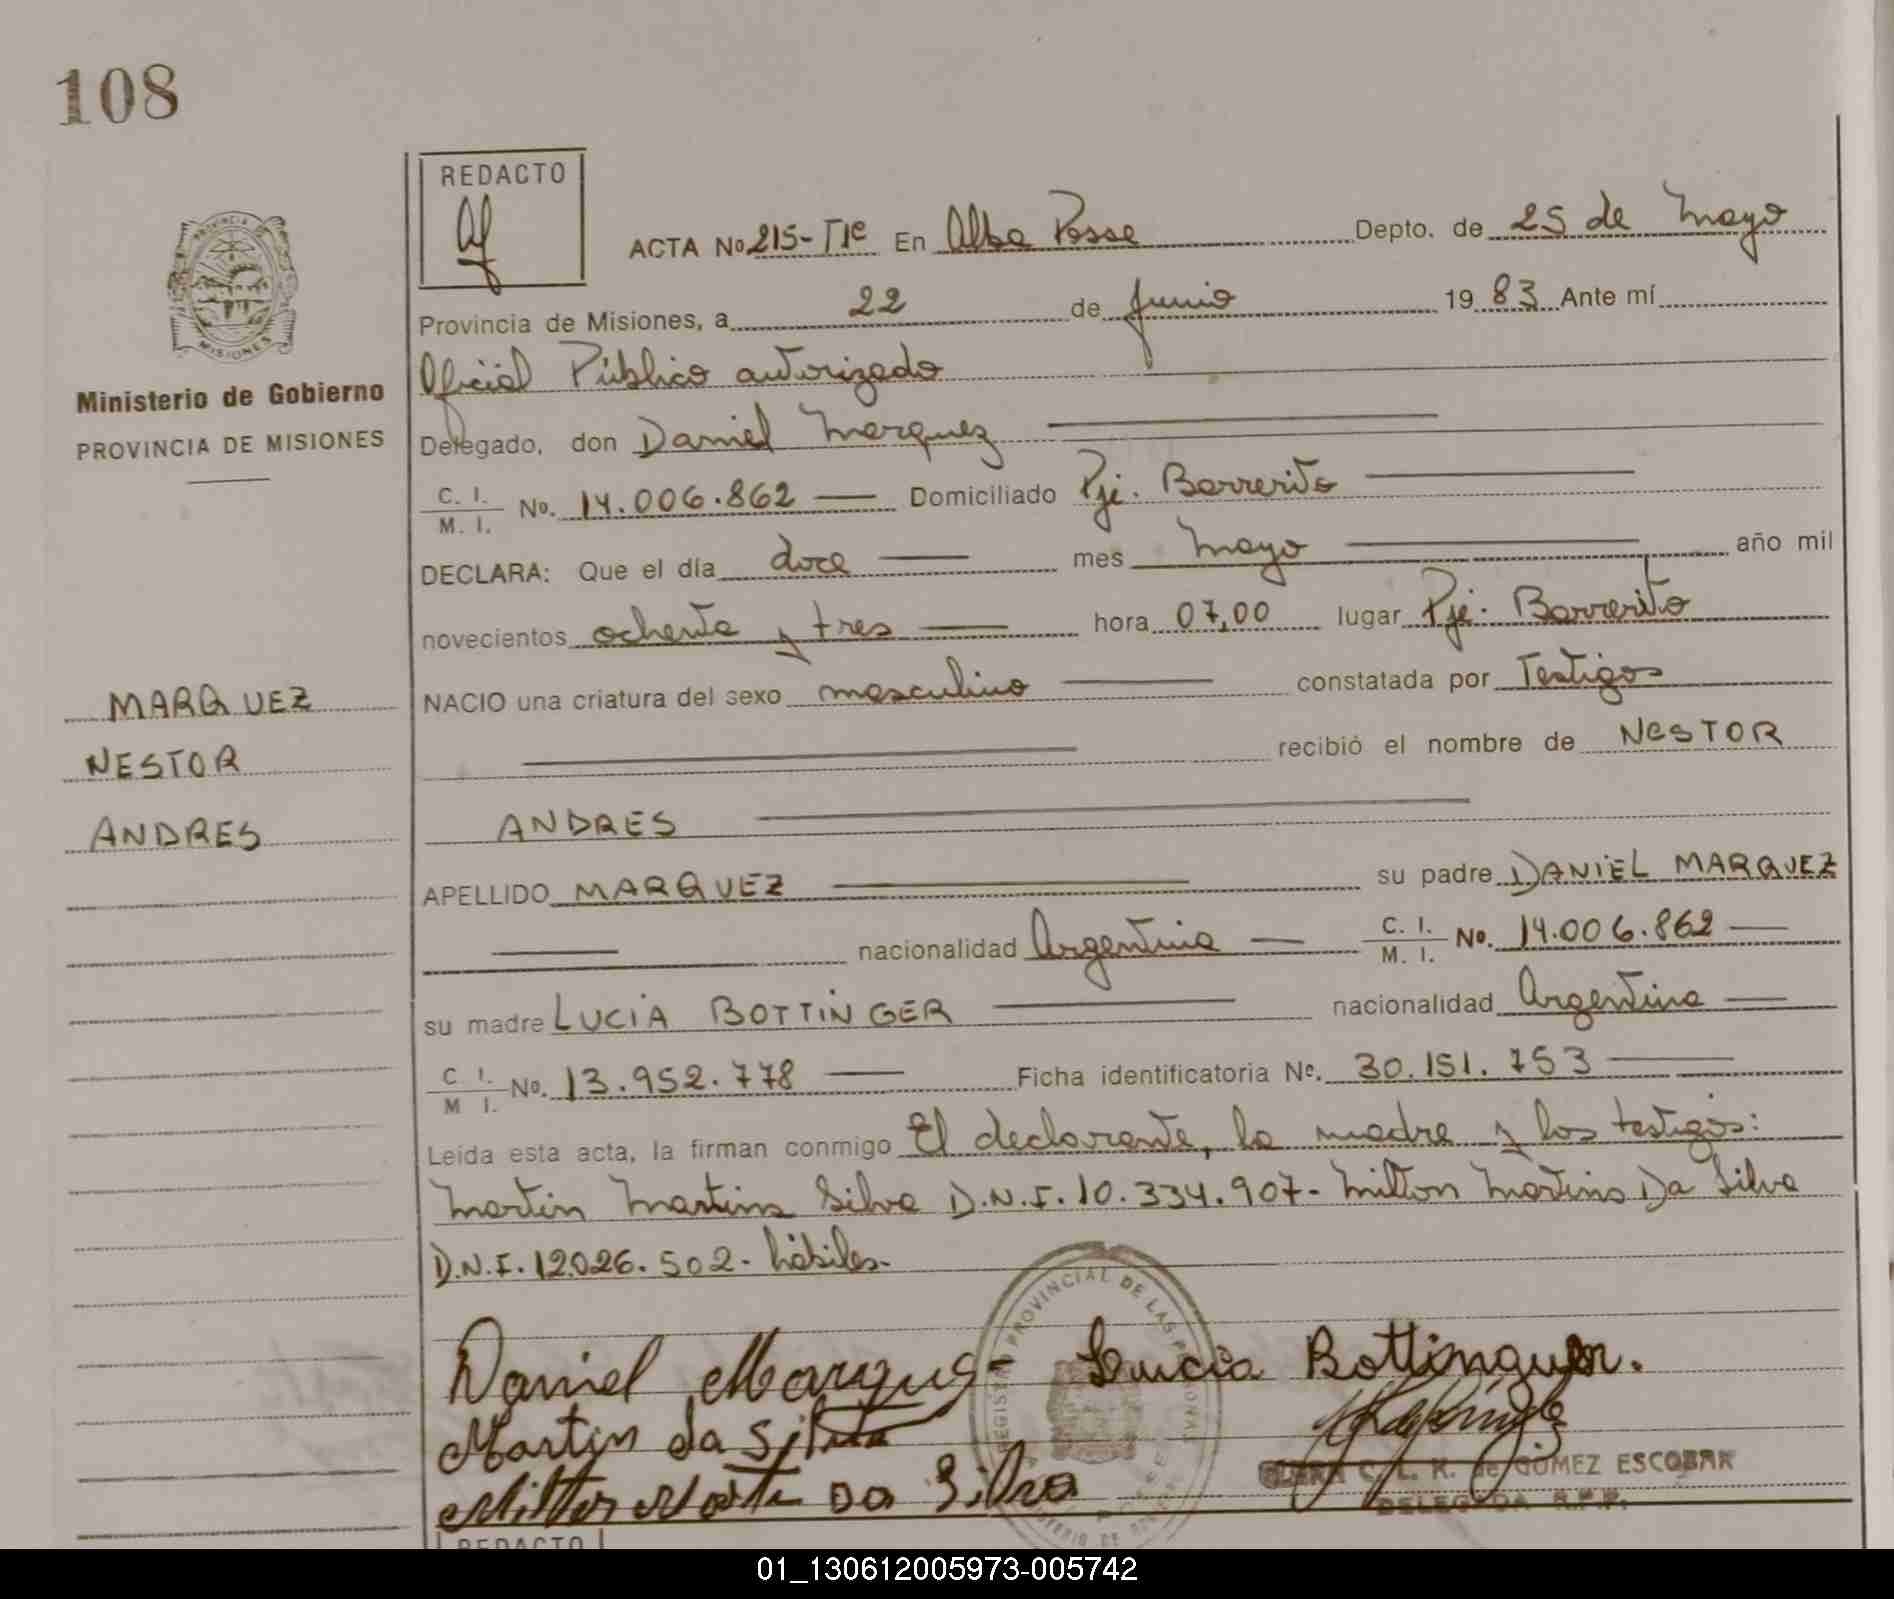 108
REDACTO
PROVINCIA
MISIONES
Ministerio de Gobierno
PROVINCIA DE MISIONES
MARQUEZ
NESTOR
ANDRES
ACTA No 215-TIe En Alba Posse Depto. de 25 de Mayo
Provincia de Misiones, a 22 de Junio 1983 Ante mí
Oficial Público autorizado
Delegado, don Daniel Marquez
C. I. / M. I. No. 14.006.862 — Domiciliado Pje. Barrerito
DECLARA: Que el día doce — mes Mayo — año mil
novecientos ochenta y tres — hora 07,00 lugar Pje. Barrerito
NACIO una criatura del sexo masculino — constatada por Testigos
— recibió el nombre de NESTOR
ANDRES —
APELLIDO MARQUEZ — su padre DANIEL MARQUEZ
— nacionalidad Argentina — C. I. / M. I. No. 14.006.862 —
su madre LUCIA BOTTINGER — nacionalidad Argentina —
C I. / M I. No. 13.952.778 — Ficha identificatoria No. 30.151.753 —
Leída esta acta, la firman conmigo El declarante, la madre y los testigos:
Martin Martins Silva D.N.I. 10.334.907- Milton Martins Da Silva
D.N.I. 12.026.502- hábiles-
Daniel Marques- Lucia Bottinguer.
Martin da Silva
Milton Da Silva
REGISTRO PROVINCIAL DE LAS PERSONAS
C. L. K. de GOMEZ ESCOBAR
DELEGADA R.P.P.
REDACTO
01_130612005973-005742